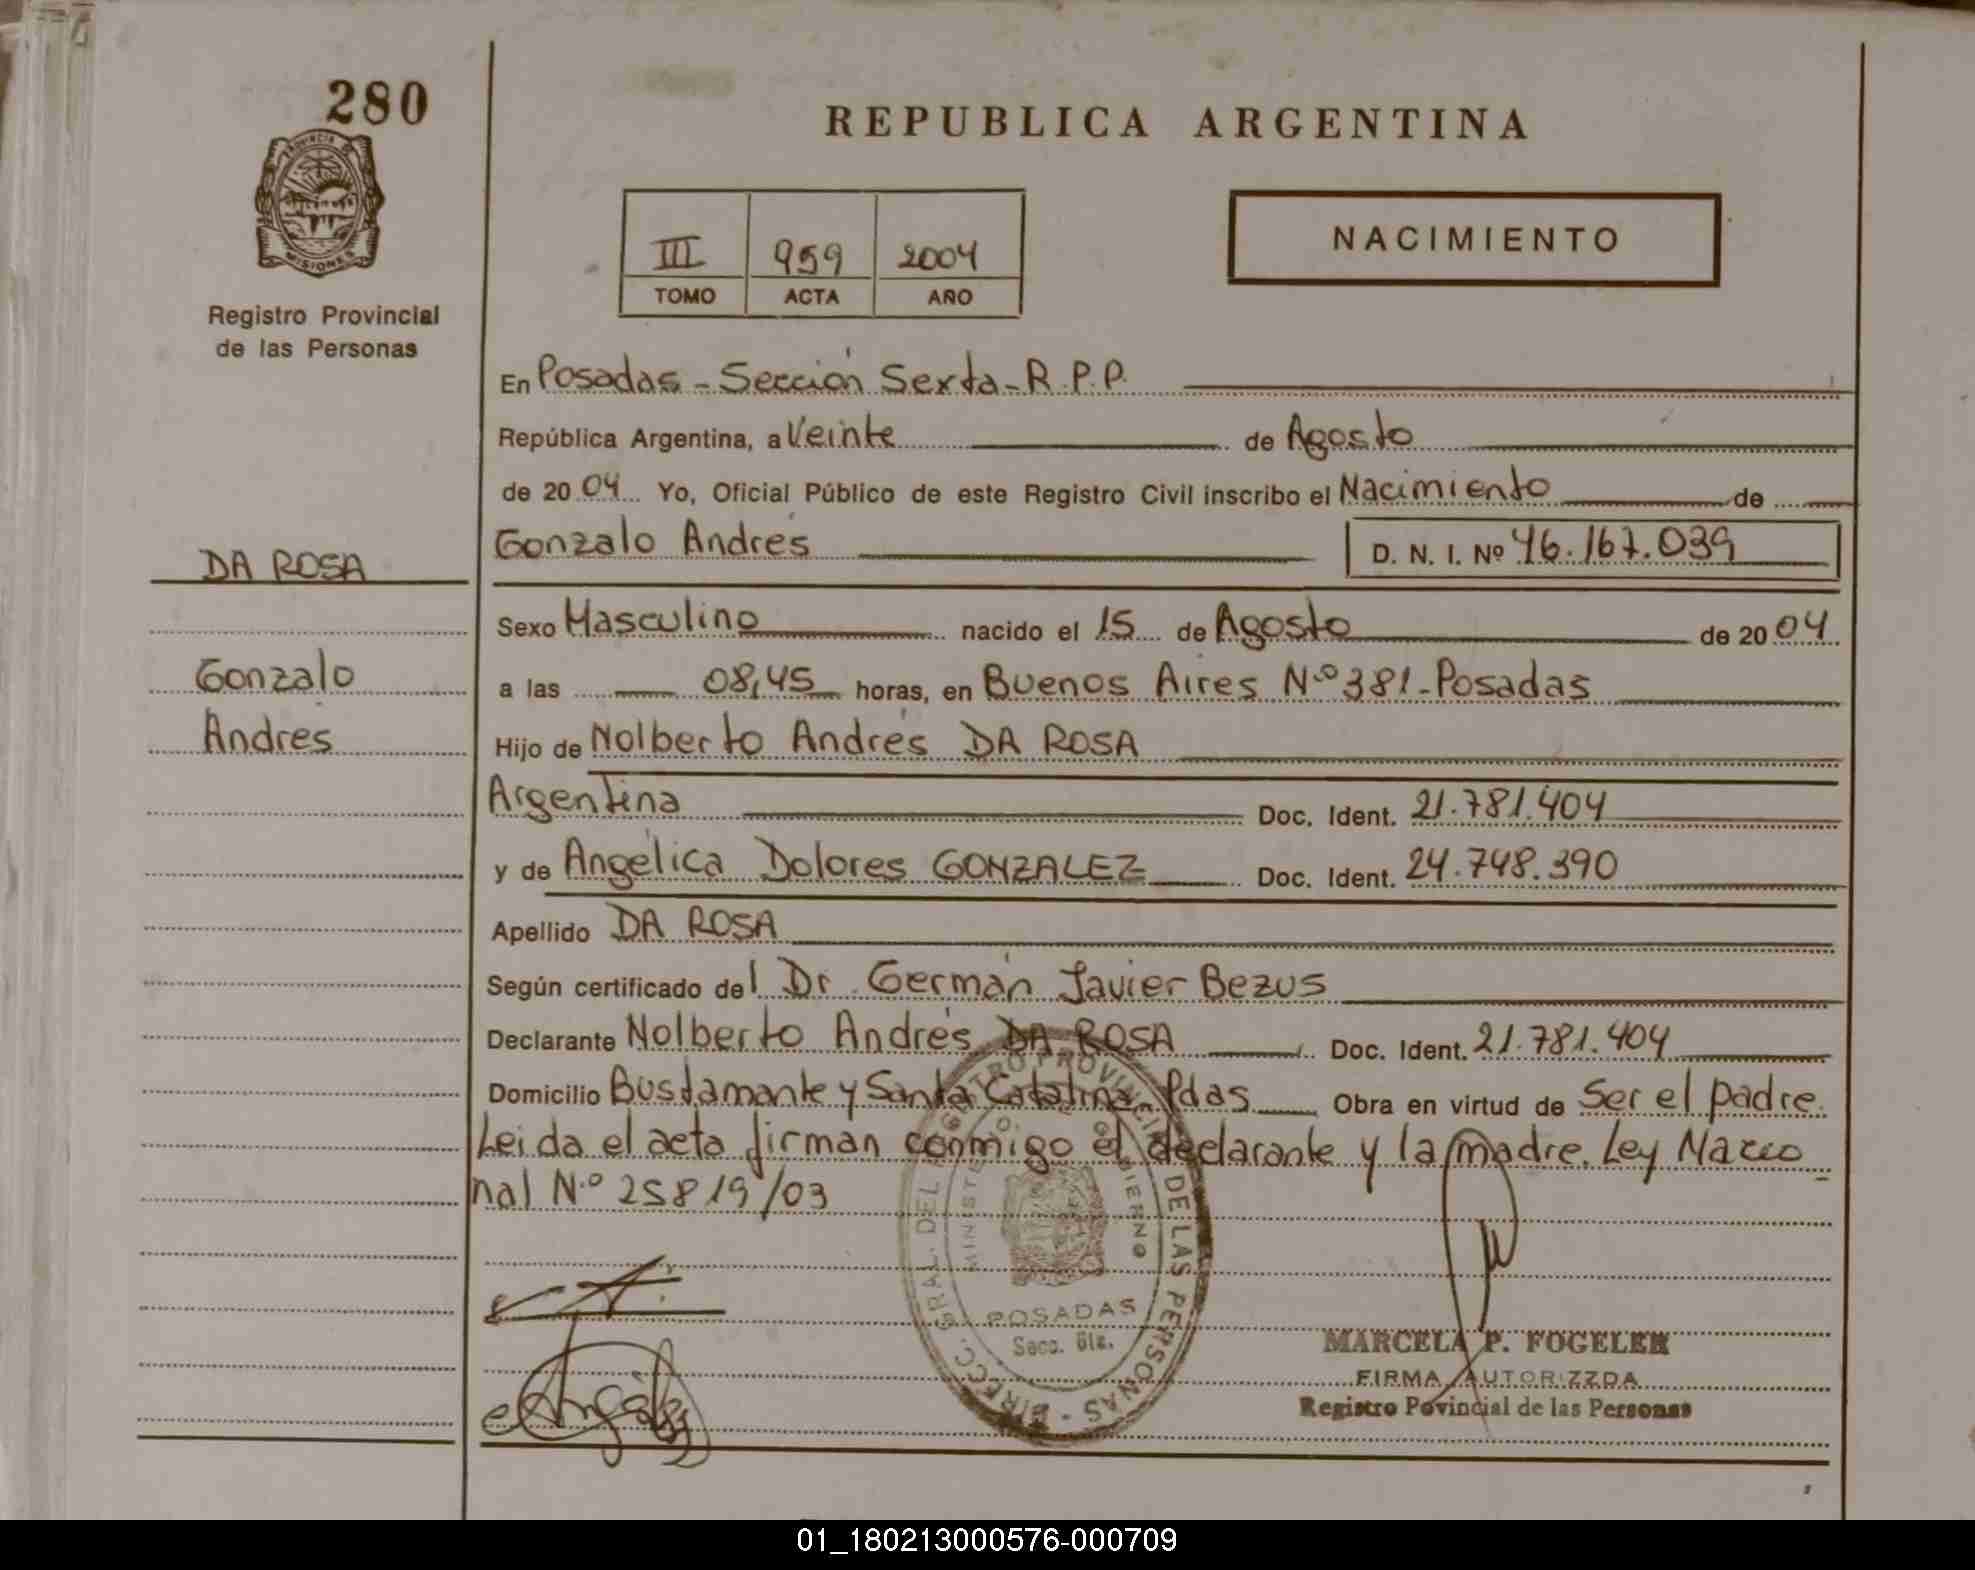 280
PROVINCIA DE
MISIONES
Registro Provincial
de las Personas
DA ROSA
Gonzalo
Andres
REPUBLICA ARGENTINA
III 959 2004
TOMO ACTA AÑO
NACIMIENTO
En Posadas - Sección Sexta - R.P.P.
República Argentina, a Veinte de Agosto
de 20 04 Yo, Oficial Público de este Registro Civil inscribo el Nacimiento de
Gonzalo Andrés D. N. I. Nº 46.167.039
Sexo Masculino nacido el 15 de Agosto de 20 04
a las 08,45 horas, en Buenos Aires Nº 381 - Posadas
Hijo de Nolberto Andrés DA ROSA
Argentina Doc. Ident. 21.781.404
y de Angélica Dolores GONZALEZ Doc. Ident. 24.748.390
Apellido DA ROSA
Según certificado del Dr. Germán Javier Bezus
Declarante Nolberto Andrés DA ROSA Doc. Ident. 21.781.404
Domicilio Bustamante y Santa Catalina Pdas Obra en virtud de Ser el padre.
Leida el acta firman conmigo el declarante y la madre. Ley Nacio
nal Nº 25819/03
DIRECC. GRAL. DEL REGISTRO PROVINCIAL DE LAS PERSONAS -
MINISTERIO DE GOBIERNO
POSADAS
Secc. 6ta.
MARCELA P. FOGELER
FIRMA AUTORIZZDA
Registro Povincial de las Personas
01_180213000576-000709